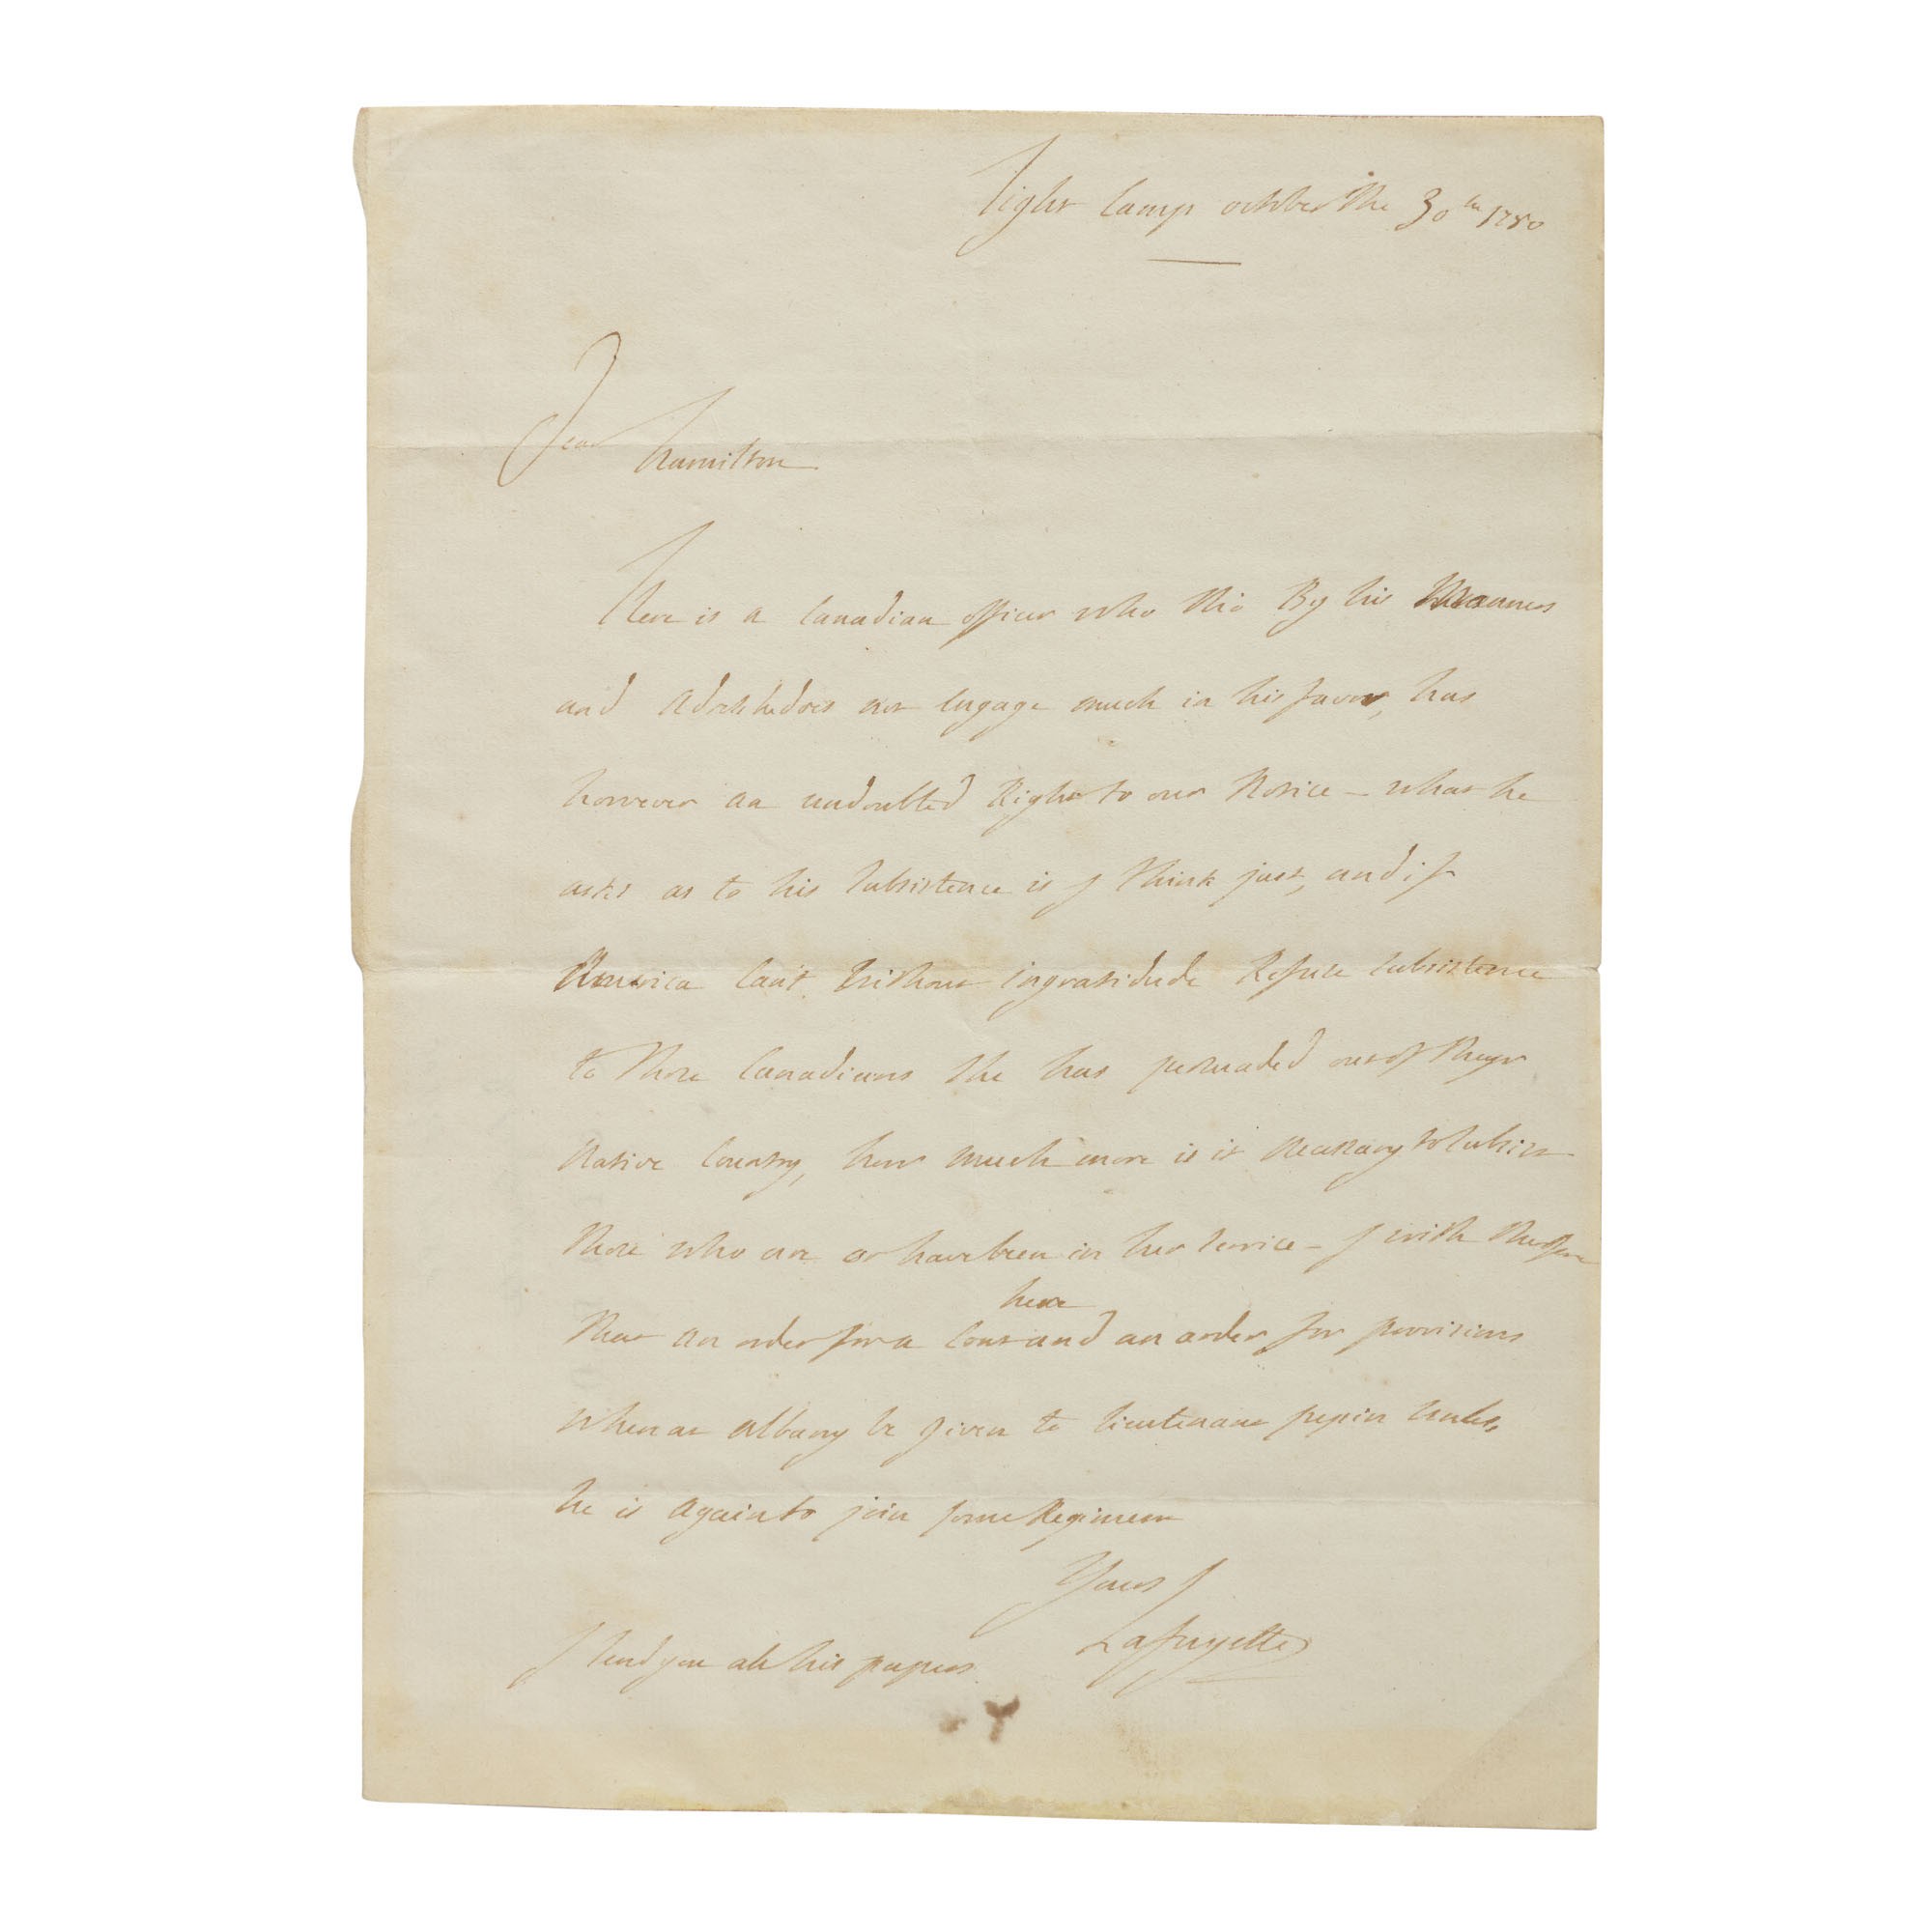 light Camp october the 30th 1780
Dear hamilton
Here is a Canadian officer who tho By his Manners
and Adress he does not Engage much in his favor, has
however an undoubted Right to our Notice – what he
asks as to his Subsistence is I think just, and if
America Can't Without ingratidude Refuse Subsistence
to those Canadians she has persuaded out of theyr
Native Country, how much more is it Necessary to Subsist
those who are or have been in her Service – I wish therefore
that an order for a Coat
here
and an order for provisions
when at albany be given to lieutenant pepin Unless
he is again to join some Regiment
Yours
Lafayette
I Send you all his papers.